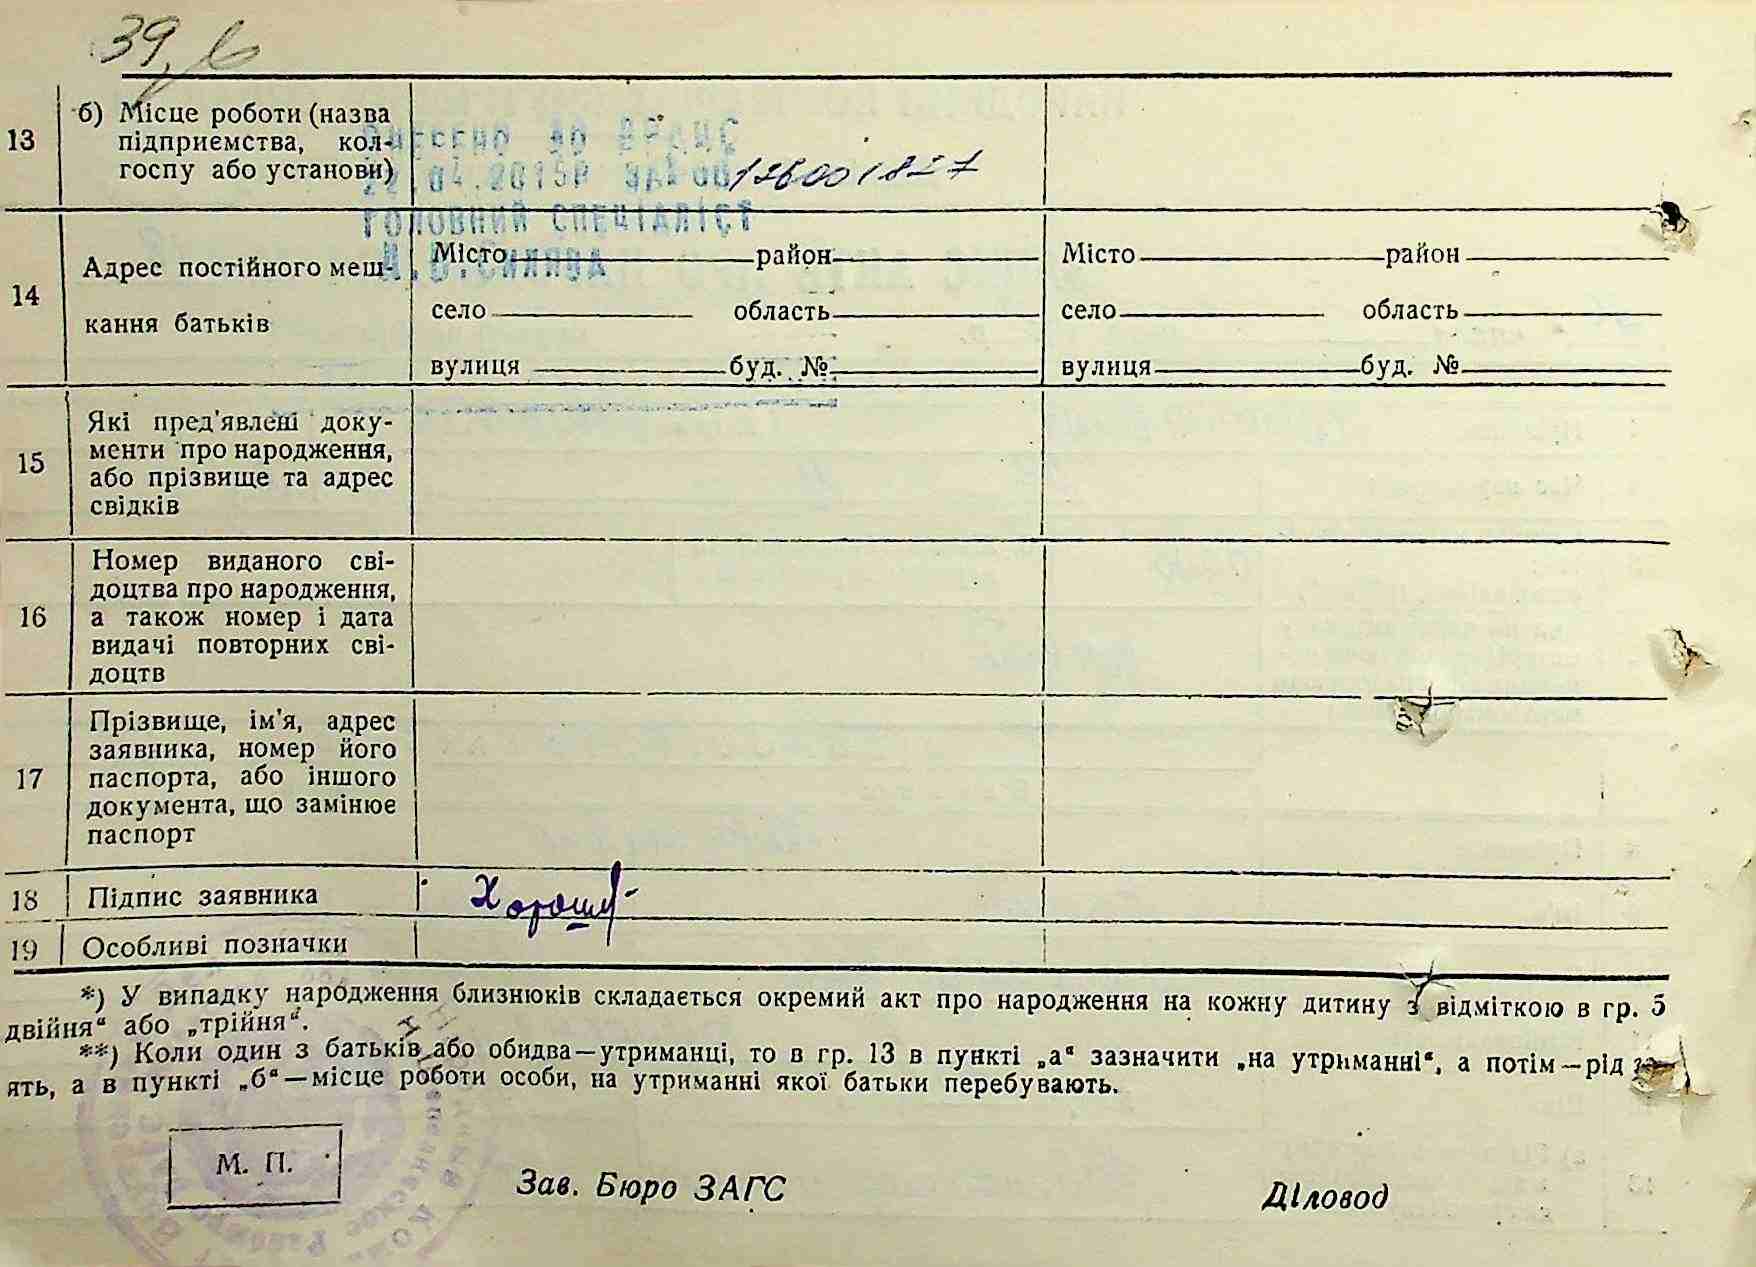 39
13
б) Місце роботи (назва
підприємства, кол-
госпу або установи)
ВНЕСЕНО ДО ДРАЦС
126001827
ГОЛОВНИЙ СПЕЦІАЛІСТ
14
Адрес постійного меш-
кання батьків
Місто район
село область
вулиця буд. №
Місто район
село область
вулиця буд. №
15
Які пред'явлені доку-
менти про народження,
або прізвище та адрес
свідків
16
Номер виданого сві-
доцтва про народження,
а також номер і дата
видачі повторних сві-
доцтв
17
Прізвище, ім'я, адрес
заявника, номер його
паспорта, або іншого
документа, що замінює
паспорт
18 Підпис заявника
19 Особливі позначки
*) У випадку народження близнюків складається окремий акт про народження на кожну дитину з відміткою в гр. 5
двійня“ або „трійня“.
**) Коли один з батьків або обидва—утриманці, то в гр. 13 в пункті „а“ зазначити „на утриманні“, а потім—рід за-
ять, а в пункті „б“—місце роботи особи, на утриманні якої батьки перебувають.
М. П.
Зав. Бюро ЗАГС
Діловод